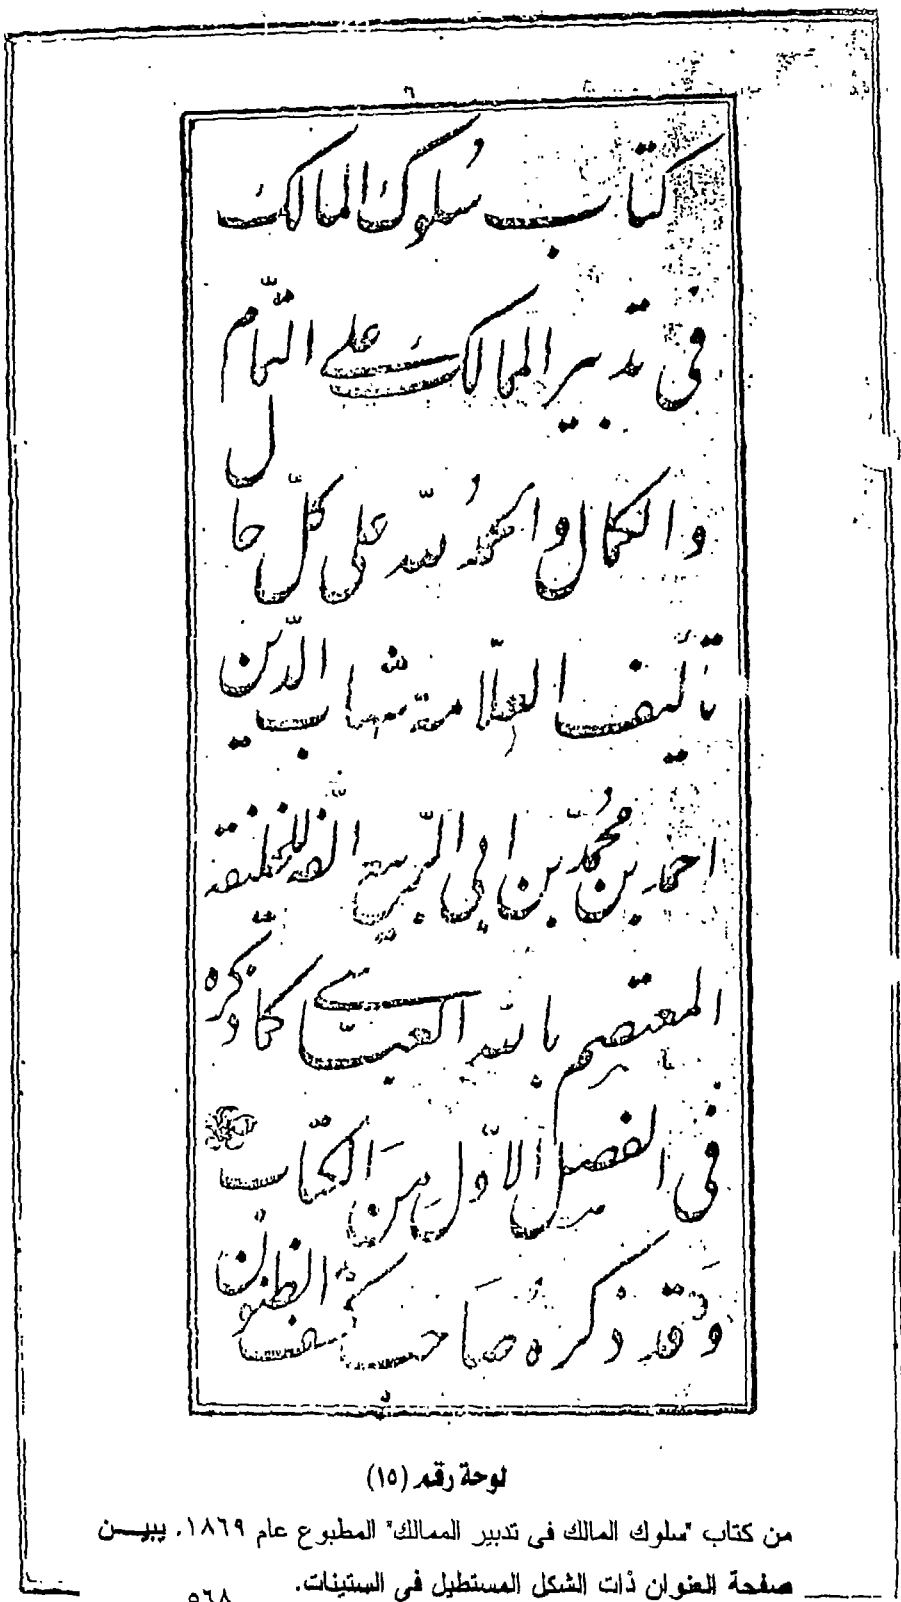 ٦
كتاب سُلوك المالك
في تدبير الممالك على التمام
والكمال والحمدُ لله على كلّ حال
تأليف العلّامة شهاب الدّين
احمد بن محُمّد بن ابي الرّبيع الّفه للخليفة
المعتصم بالله العبّاسي كما ذكره
في الفصل الاوّل مِنَ الكتّاب
وَقد ذكره صَاحب كشف الظنون
لوحة رقم (١٥)
من كتاب "سلوك المالك فى تدبير الممالك" المطبوع عام ١٨٦٩. يبيــن
صفحة العنوان ذات الشكل المستطيل فى الستينات.
٥٦٨